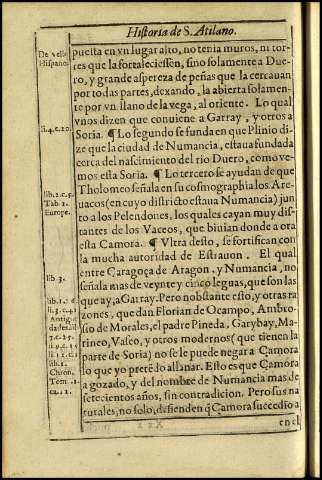 Historia de S. Atilano.
De vello
Hispano.
puesta en vn lugar alto, no tenia muros, ni tor
res que la fortaleciessen, sino solamente a Due
ro, y grande aspereza de peñas que la cercauan
por todas partes, dexando, la abierta solamen-
te por vn llano de la vega, al oriente. Lo qual
vnos dizen que conuiene a Garray, y otros a
Soria. ¶ Lo segundo se funda en que Plinio di
ze que la ciudad de Numancia, estaua fundada
cerca del nascimiento del rio Duero, como ve-
mos esta Soria. ¶ Lo tercero se ayudan de que
Tholomeo señala en su cosmographia los Are-
uacos (en cuyo districto estaua Numancia) jun
to a los Pelendones, los quales cayan muy dis-
tantes de los Vaceos, que biuian donde a ora
esta Camora. ¶ Vltra desto, se fortifican con
la mucha autoridad de Estrauon. El qual
entre Caragoça de Aragon, y Numancia, no
señala mas de veynte y cinco leguas, que son las
que ay, a Garray. Pero no obstante esto, y otras ra
zones, que dan Florian de Ocampo, Ambro-
sio de Morales, el padre Pineda, Garybay, Ma-
rineo, Vaseo, y otros modernos (que tienen la
parte de Soria) no se le puede negar a Çamora
lo que yo pretẽdo allanar. Esto es que Çamora
a gozado, y del nombre de Numancia mas de
setecientos años, sin contradicion. Pero sus na
turales, no solo, difienden q̃ Çamora succedio a
en el
li. 4. c. 20.
lib. 2. c. 6.
Tab. 2.
Europe.
lib. 3.
Antig
Chron.